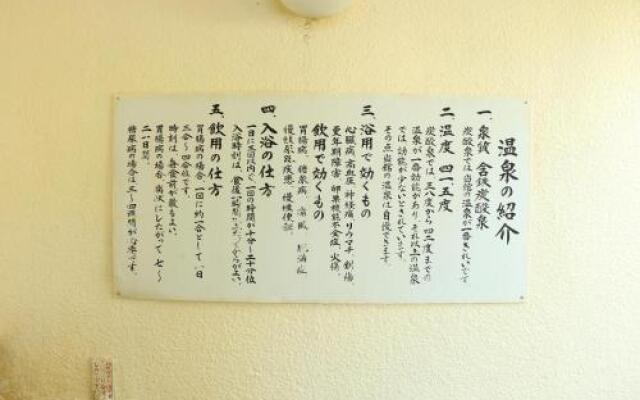 温泉の紹介
一、泉質 含鉄炭酸泉
炭酸泉では当館の温泉が一番きれいです
二、温度 四一、五度
炭酸泉では、三八度から四二度までの
温泉が一番効能があり、それ以上の温泉
では、効能が少ないとされています。
その点当館の温泉は自慢できます。
三、浴用で効くもの
心臓病、高血圧、神経痛、リウマチ、創傷、
更年期障害、卵巣機能不全症、火傷、
飲用で効くもの
胃腸病、糖尿病、痛風、
慢性
四、入浴の仕方
一日に三回以内で、一回の時間が十分〜二十分位
入浴時刻は、食後
五、飲用の仕方
胃腸病の場合、一回に約一合として、一日
三合〜四合位です。
時刻は、毎食前が最もよい。
胃腸病の場合、病状にしたがって、七〜
二一日間。
糖尿病の場合は、三〜四週間が